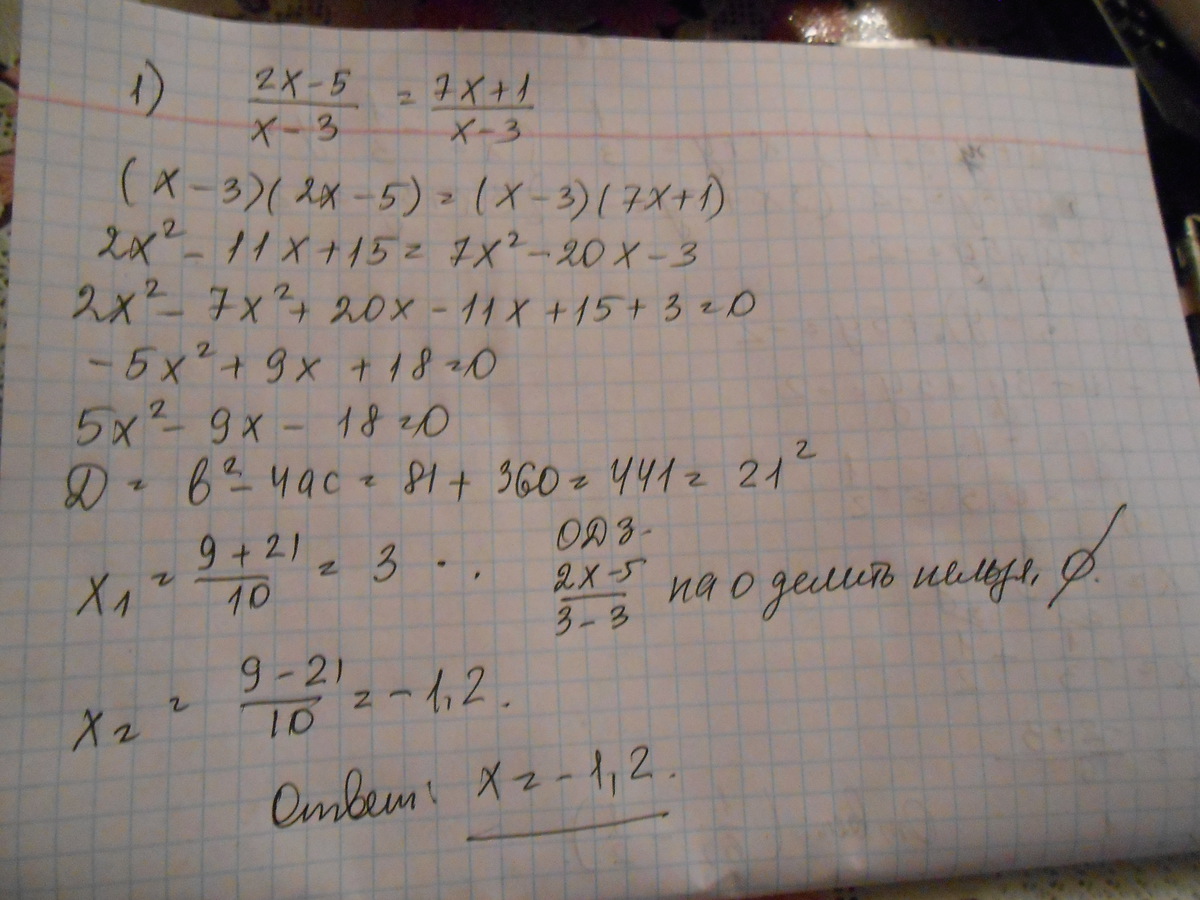 1) (2x-5)/(x-3) = (7x+1)/(x-3)
(x-3)(2x-5)=(x-3)(7x+1)
2x²-11x+15=7x²-20x-3
2x²-7x²+20x-11x+15+3=0
-5x²+9x+18=0
5x²-9x-18=0
Д = в²-4ac = 81+360=441=21²
x₁ = (9+21)/10 = 3 · .
ОДЗ-
(2x-5)/(3-3) на 0 делить нельзя, ∅.
x₂ = (9-21)/10 = -1,2.
Ответ: x=-1,2.